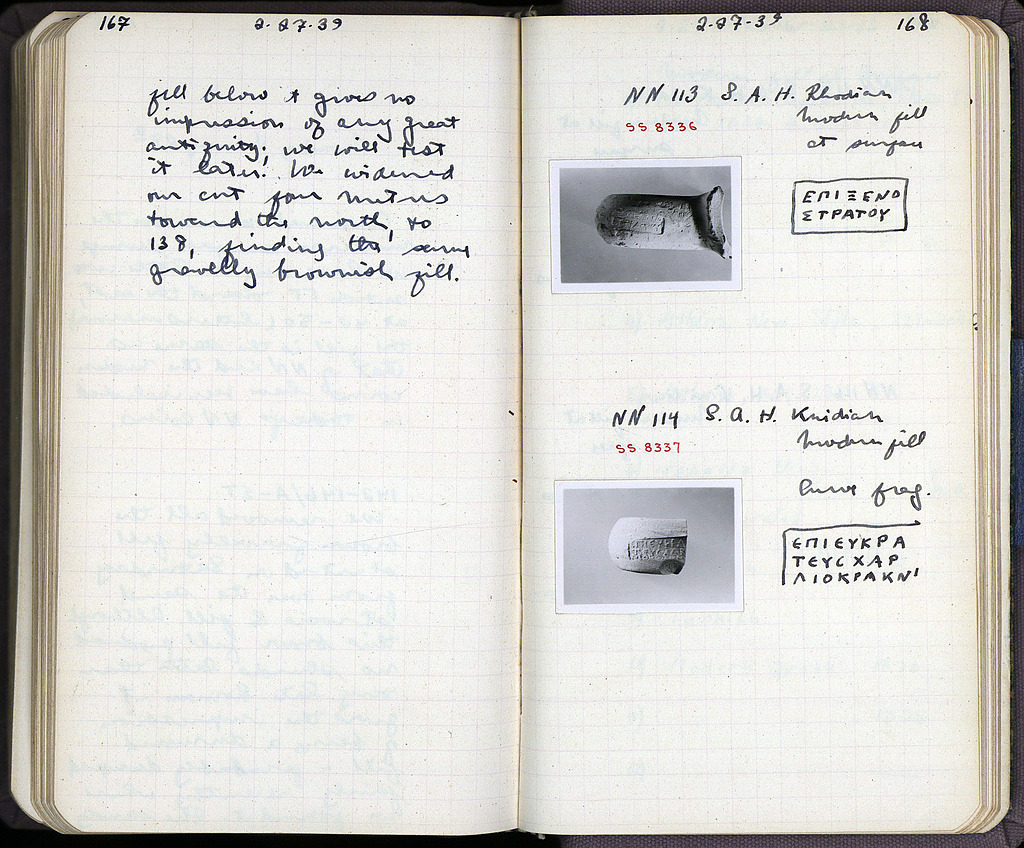 167
2-27-39
fill below it gives no
impression of any great
antiquity; we will test
it later. We widened
our cut four metres
toward the north, to
138, finding the same
gravelly brownish fill.
2-27-39
168
NN 113 S. A. H. Rhodian
SS 8336
modern fill
at surface
ΕΠΙΞΕΝΟ
ΣΤΡΑΤΟΥ
NN 114 S. A. H Knidian
SS 8337
modern fill
frag.
ΕΠΙΕΥΚΡΑ
ΤΕΥϹΧΑΡ
ΛΙΟΚΡΑΚΝΙ